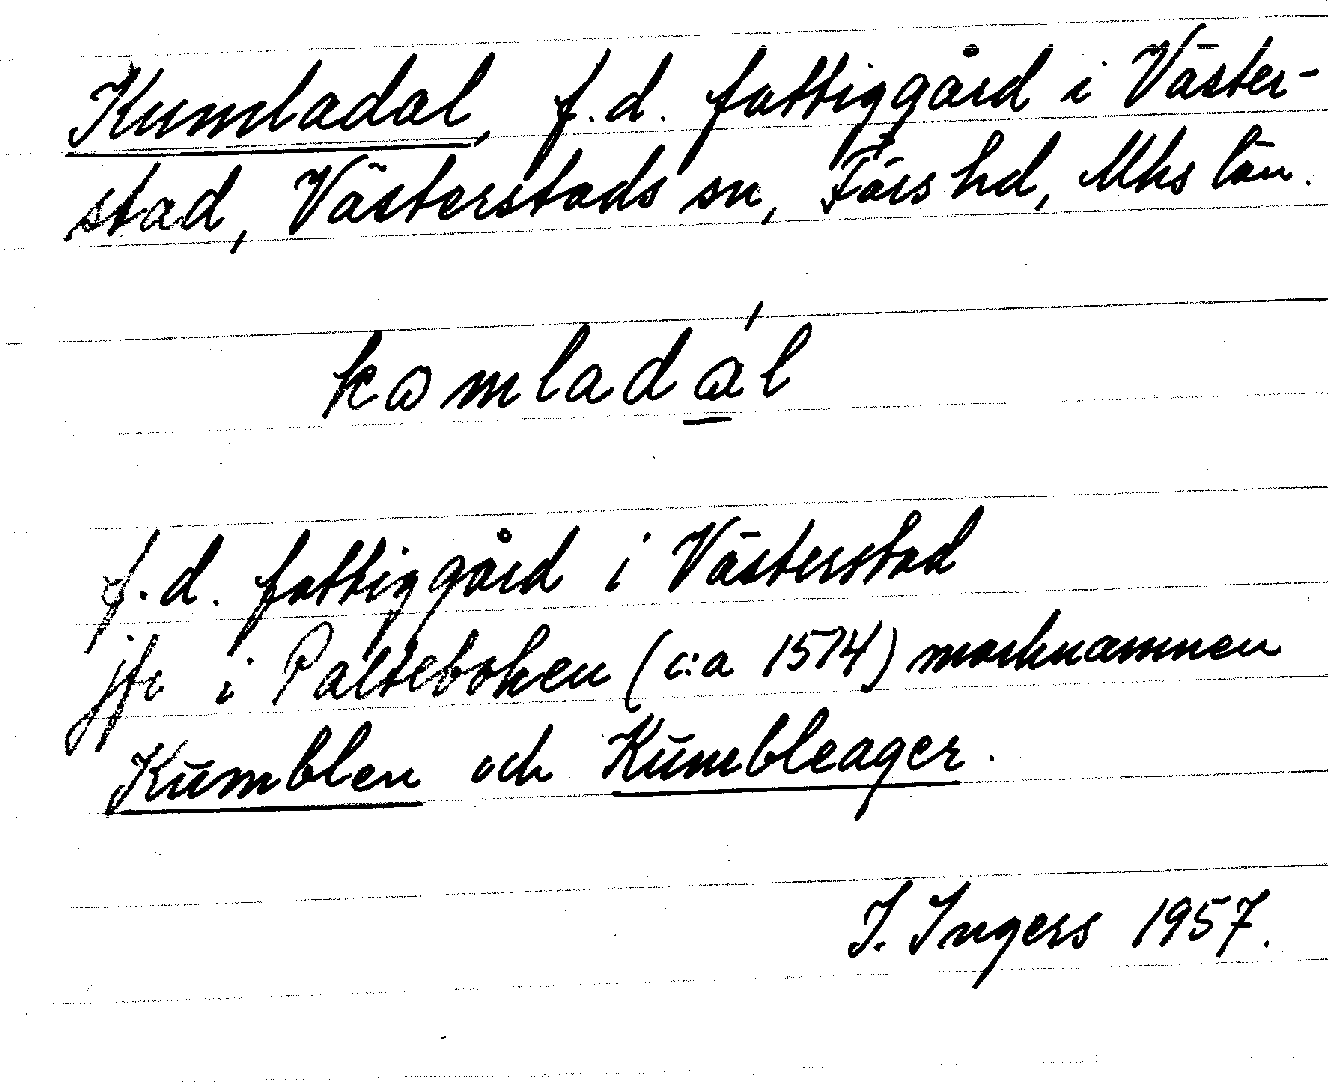 Kumladal, f.d. fattiggård i Väster-
stad, Västerstads sn, Färs hd, Mhs län.
kɷmladɑ́l
f.d. fattiggård i Västerstad
jfr i Palteboken (c:a 1514) marknamnen
Kūmblen och Kūmbleager.
I. Ingers 1957.